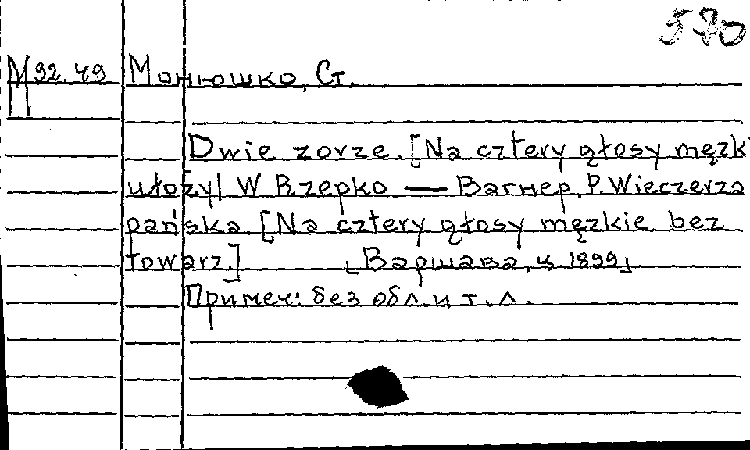 570
М 92.49 Монюшко, Ст.
Dwie zorze. [Na cztery głosy męzk
ułożył W. Rzepko — Вагнер, Р. Wieczerza
pańska. [Na cztery głosy męzkie bez
towarz.] [Варшава, ц. 1899]
Примеч: без обл. и т. л.